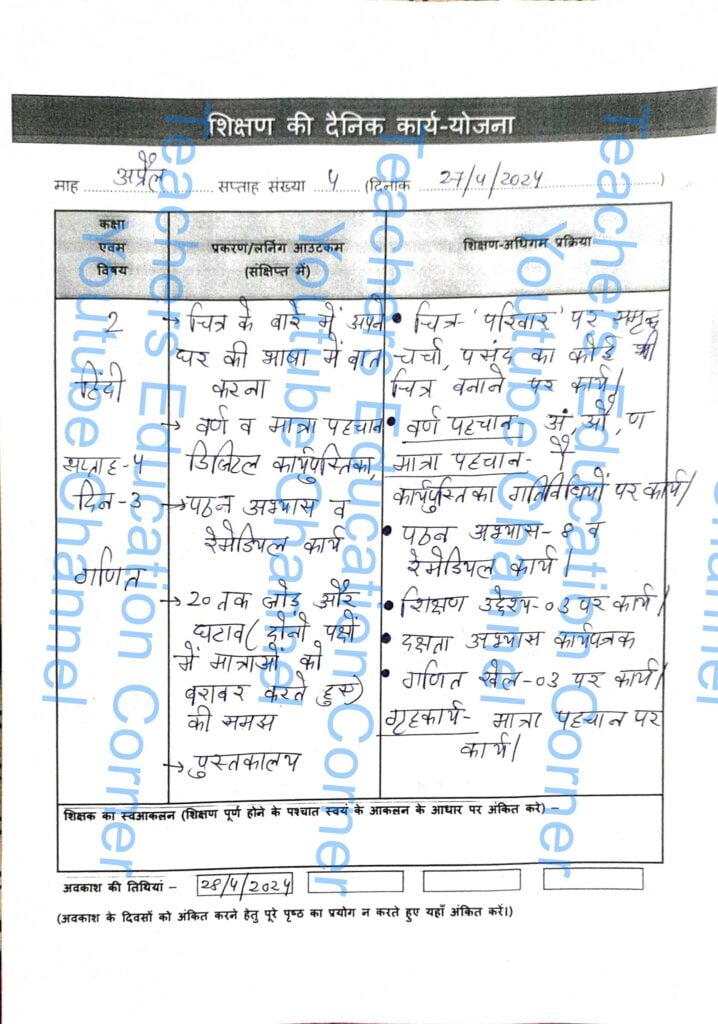 शिक्षण की दैनिक कार्य-योजना
माह अप्रैल सप्ताह संख्या 4 (दिनांक 27/4/2024)
कक्षा
एवम
विषय
प्रकरण/लर्निंग आउटकम
(संक्षिप्त में)
शिक्षण-अधिगम प्रक्रिया
2
हिंदी
सप्ताह-4
दिन-3
गणित
→ चित्र के बारे में अपने
घर की भाषा में बात
करना
→ वर्ण व मात्रा पहचान
डिजिटल कार्यपुस्तिका,
→ पठन अभ्यास व
रेमेडियल कार्य
→ 20 तक जोड़ और
घटाव (दोनो पक्षों
में मात्राओं को
बराबर करते हुए)
की समझ
→ पुस्तकालय
• चित्र- 'परिवार' पर समृद्ध
चर्चा, पसंद का कोई भी
चित्र बनाने पर कार्य|
• वर्ण पहचान- अं, औ, ण
मात्रा पहचान- ौ
कार्यपुस्तिका गतिविधियों पर कार्य|
• पठन अभ्यास- 8 व
रेमेडियल कार्य|
• शिक्षण उद्देश्य-03 पर कार्य|
• दक्षता अभ्यास कार्यपत्रक
• गणित खेल-03 पर कार्य|
गृहकार्य- मात्रा पहचान पर
कार्य|
शिक्षक का स्वआकलन (शिक्षण पूर्ण होने के पश्चात स्वयं के आकलन के आधार पर अंकित करे) –
अवकाश की तिथियां – 28/4/2024
(अवकाश के दिवसों को अंकित करने हेतु पूरे पृष्ठ का प्रयोग न करते हुए यहाँ अंकित करें।)
Teachers Education Corner
Youtube Channel
Teachers Education Corner
Youtube Channel
Teachers Education Corner
Youtube Channel